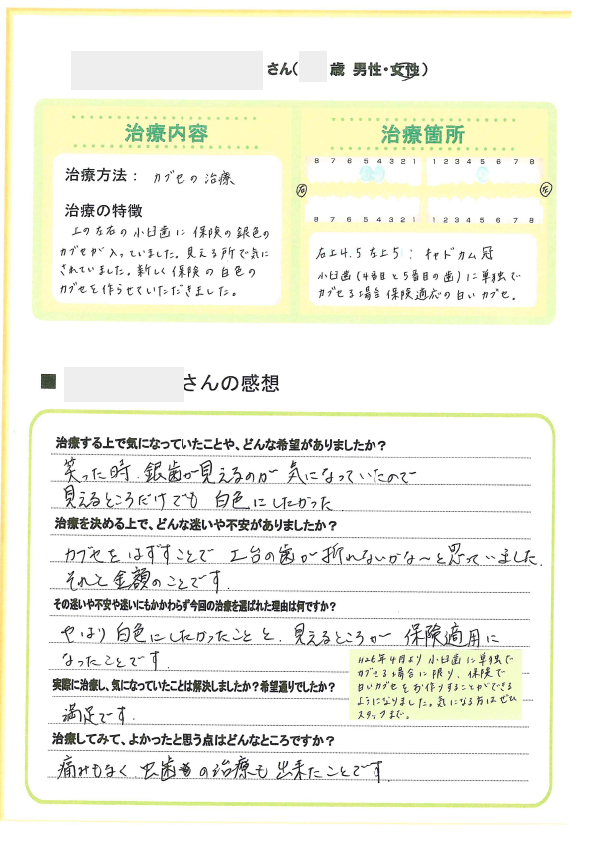 さん( 歳 男性・女性)
治療内容
治療方法： カブセの治療
治療の特徴
上の左右の小臼歯に保険の銀色の
カブセが入っていました。見える所で気に
されていました。新しく保険の白色の
カブセを作らせていただきました。
治療箇所
8 7 6 5 4 3 2 1 1 2 3 4 5 6 7 8
右 左
8 7 6 5 4 3 2 1 1 2 3 4 5 6 7 8
右上4.5 左上5： キャドカム冠
小臼歯(4番目と5番目の歯)に単独で
カブせる場合保険適応の白いカブセ。
■ さんの感想
治療する上で気になっていたことや、どんな希望がありましたか？
笑った時、銀歯が見えるのが気になっていたので
見えるところだけでも白色にしたかった
治療を決める上で、どんな迷いや不安がありましたか？
カブセをはずすことで土台の歯が折れないかな～と思っていました。
それと金額のことです。
その迷いや不安や迷いにもかかわらず今回の治療を選ばれた理由は何ですか？
やはり白色にしたかったことと、見えるところが保険適用に
なったことです。
H26年4月より小臼歯に単独で
カブせる場合に限り、保険で
白いカブセをお作りすることができる
ようになりました。気になる方はぜひ
スタッフまで。
実際に治療し、気になっていたことは解決しましたか？希望通りでしたか？
満足です。
治療してみて、よかったと思う点はどんなところですか？
痛みもなく、虫歯の治療も出来たことです。